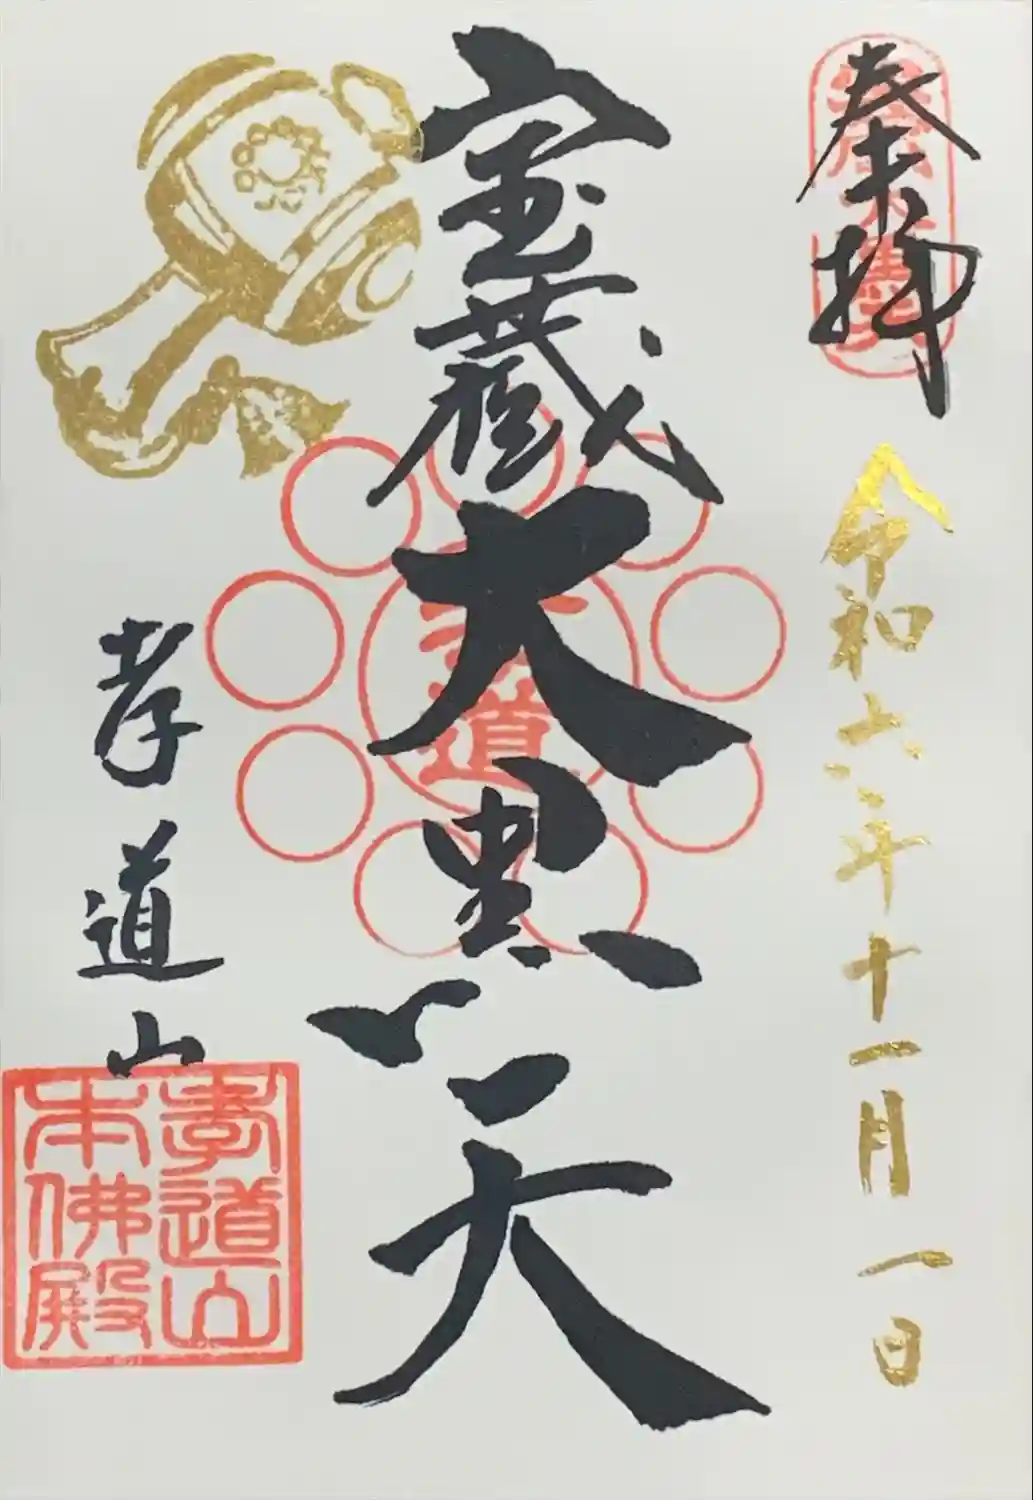 奉拝
令和六年十一月一日
宝蔵大黒天
孝道山
孝道山
本佛殿
孝道